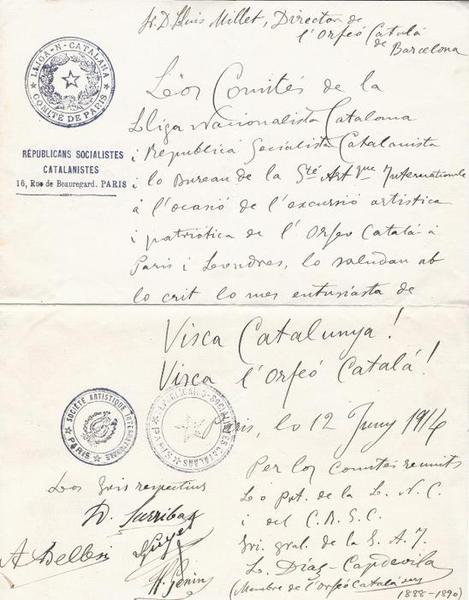 Sr. D. Lluis Millet, Director de
l'Orfeó Catalá
de Barcelona
LLIGA·N·CATALANA
COMITÉ DE PARIS
RÉPUBLICANS SOCIALISTES
CATALANISTES
16, Rue de Beauregard. PARIS
Los Comités de la
Lliga Nacionalista Catalana
i República Socialista Catalanista
i lo Bureau de la Sté Artque Internationale
á l'ocasió de l'excursió artistica
i patriótica de l'Orfeo Catalá á
Paris i Londres, lo saludan ab
lo crit lo mes entusiasta de
Visca Catalunya!
Visca l'Orfeó Catalá!
SOCIÉTÉ ARTISTIQUE INTERNATIONALE
PARIS
Paris, lo 12 Juny 1914
Per los comités reunits
Lo Prt. de la L. N. C.
i del C. R. S. C.
Sri. gral. de la S. A. I.
L. Díaz-Capdevila
(Membre de l'Orfeó Catalá
1888-1890)
Los Sris respectius